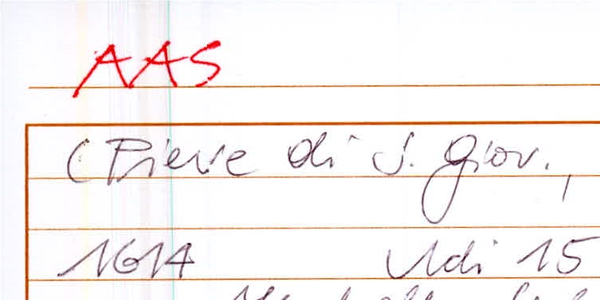 AAS
(Pieve di S. Giov.,
1614 Adi 15